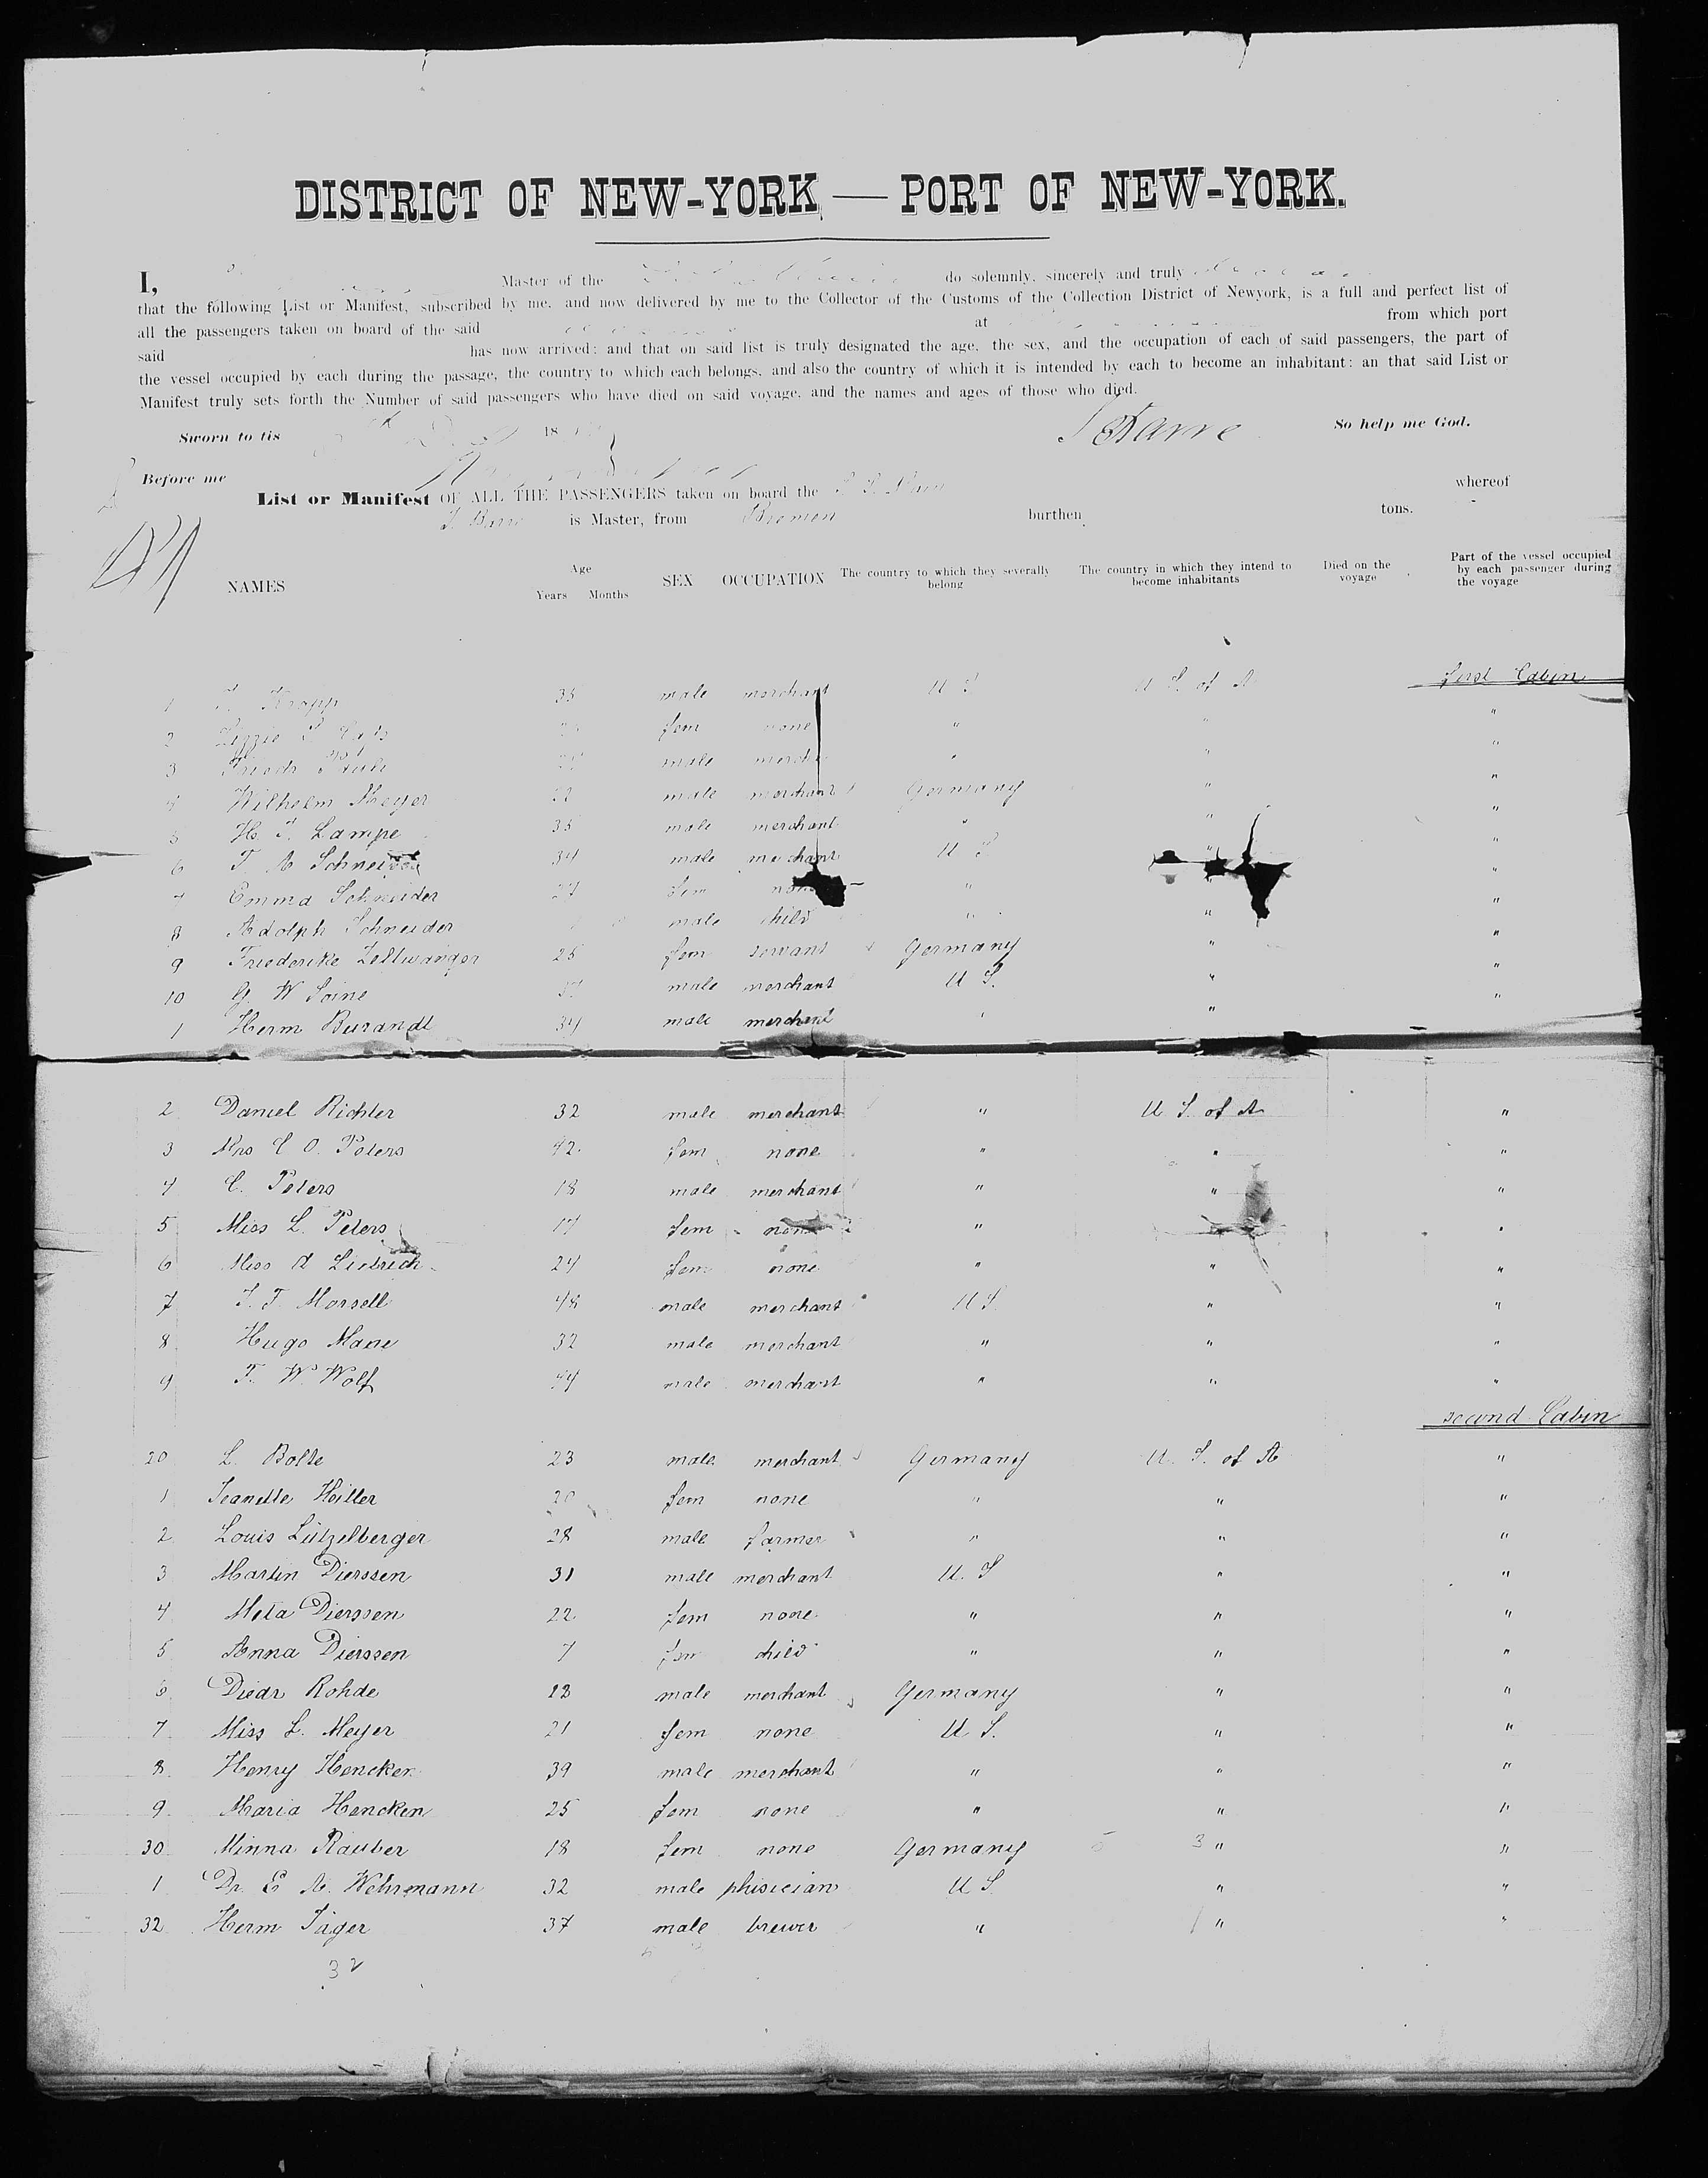 DISTRICT OF NEW-YORK — PORT OF NEW-YORK.
I, Master of the do solemnly, sincerely and truly
that the following List or Manifest, subscribed by me, and now delivered by me to the Collector of the Customs of the Collection District of Newyork, is a full and perfect list of
all the passengers taken on board of the said at from which port
said has now arrived; and that on said list is truly designated the age, the sex, and the occupation of each of said passengers, the part of
the vessel occupied by each during the passage, the country to which each belongs, and also the country of which it is intended by each to become an inhabitant: an that said List or
Manifest truly sets forth the Number of said passengers who have died on said voyage, and the names and ages of those who died.
Sworn to tis 18 So help me God.
Before me
List or Manifest OF ALL THE PASSENGERS taken on board the whereof
is Master, from Bremen burthen tons.
NAMES Age Years Months SEX OCCUPATION The country to which they severally belong The country in which they intend to become inhabitants Died on the voyage Part of the vessel occupied by each passenger during the voyage
first Cabin
1 Kropp 35 male merchant U S U S. of A "
2 Lizzie fem none " " "
3 male " " "
4 Wilhelm Meyer male merchant Germany " "
5 H. Lampe 35 male merchant " " "
6 Schneider 34 male merchant U S " "
7 Emma Schneider 27 fem none " " "
8 Adolph Schneider male child " " "
9 Friederike Zellwanger 25 fem servant Germany " "
10 G. W Soine male merchant U S. " "
1 Herm Burandt 34 male merchant " " "
2 Daniel Richter 32 male merchant " U S. of A "
3 Mrs C O. Peters 42 fem none " " "
4 C. Peters 18 male merchant " " "
5 Miss L. Peters 17 fem none " " "
6 Miss A Liebrich 24 fem none " " "
7 Morsell 48 male merchant U S. " "
8 Hugo 32 male merchant " " "
9 W. Wolf 44 male merchant " " "
second Cabin
20 L. Bolte 23 male merchant Germany U. S. of A "
1 Jeanette Heitler 20 fem none " " "
2 Louis Lützelberger 28 male farmer " " "
3 Martin Dierssen 31 male merchant U. S " "
4 Meta Dierssen 22 fem none " " "
5 Anna Dierssen 7 fem child " " "
6 Diedr Rohde male merchant Germany " "
7 Miss L. Meyer 21 fem none U S. " "
8 Henry Hencken 39 male merchant " " "
9 Maria Hencken 25 fem none " " "
30 Minna Rauber 18 fem none Germany " "
1 Dr. E A. Wehrmann 32 male phisician U S. " "
32 Herm Jäger 37 male brewer " " "
32